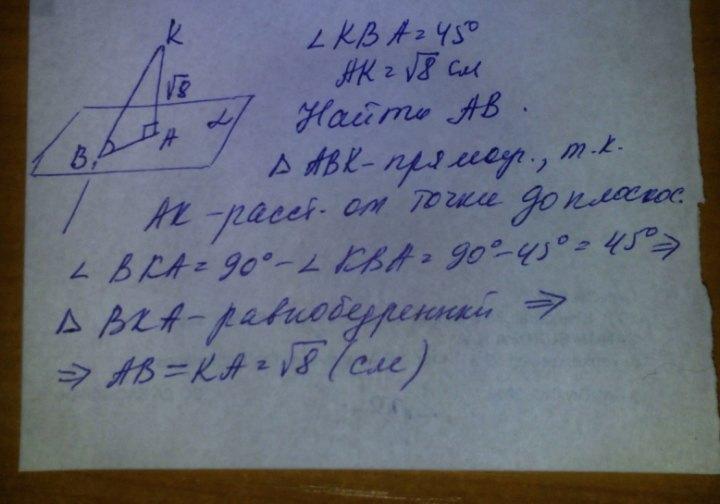 K
√8
A
B
α
∠KBA = 45°
AK = √8 см
Найти AB.
△ ABK - прямоуг., т.к.
AK - расст. от точки до плоскос.
∠ BKA = 90° - ∠ KBA = 90° - 45° = 45° ⇒
△ BKA - равнобедренный ⇒
⇒ AB = KA = √8 (см)